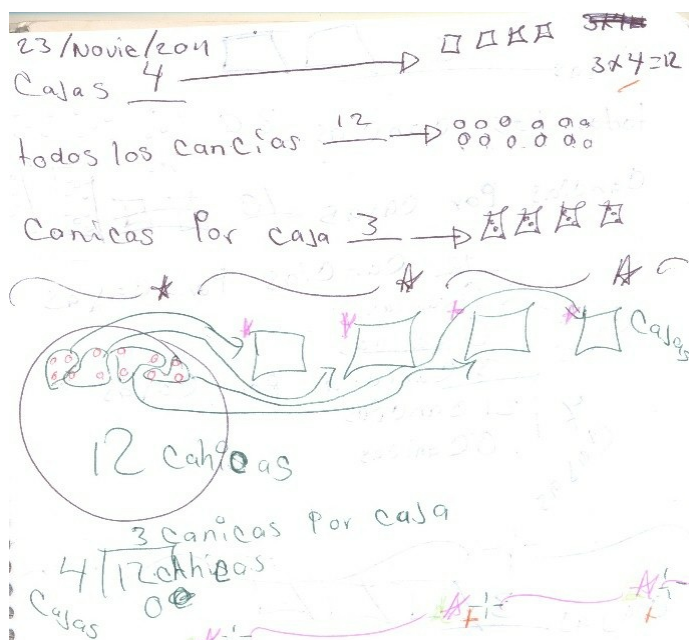 23/Novie/2011
3x4=12
Cajas 4
todos los cancías 12
Canicas Por caja 3
Cajas
12 canicas
3 canicas Por caja
4 12 canicas
Cajas 0